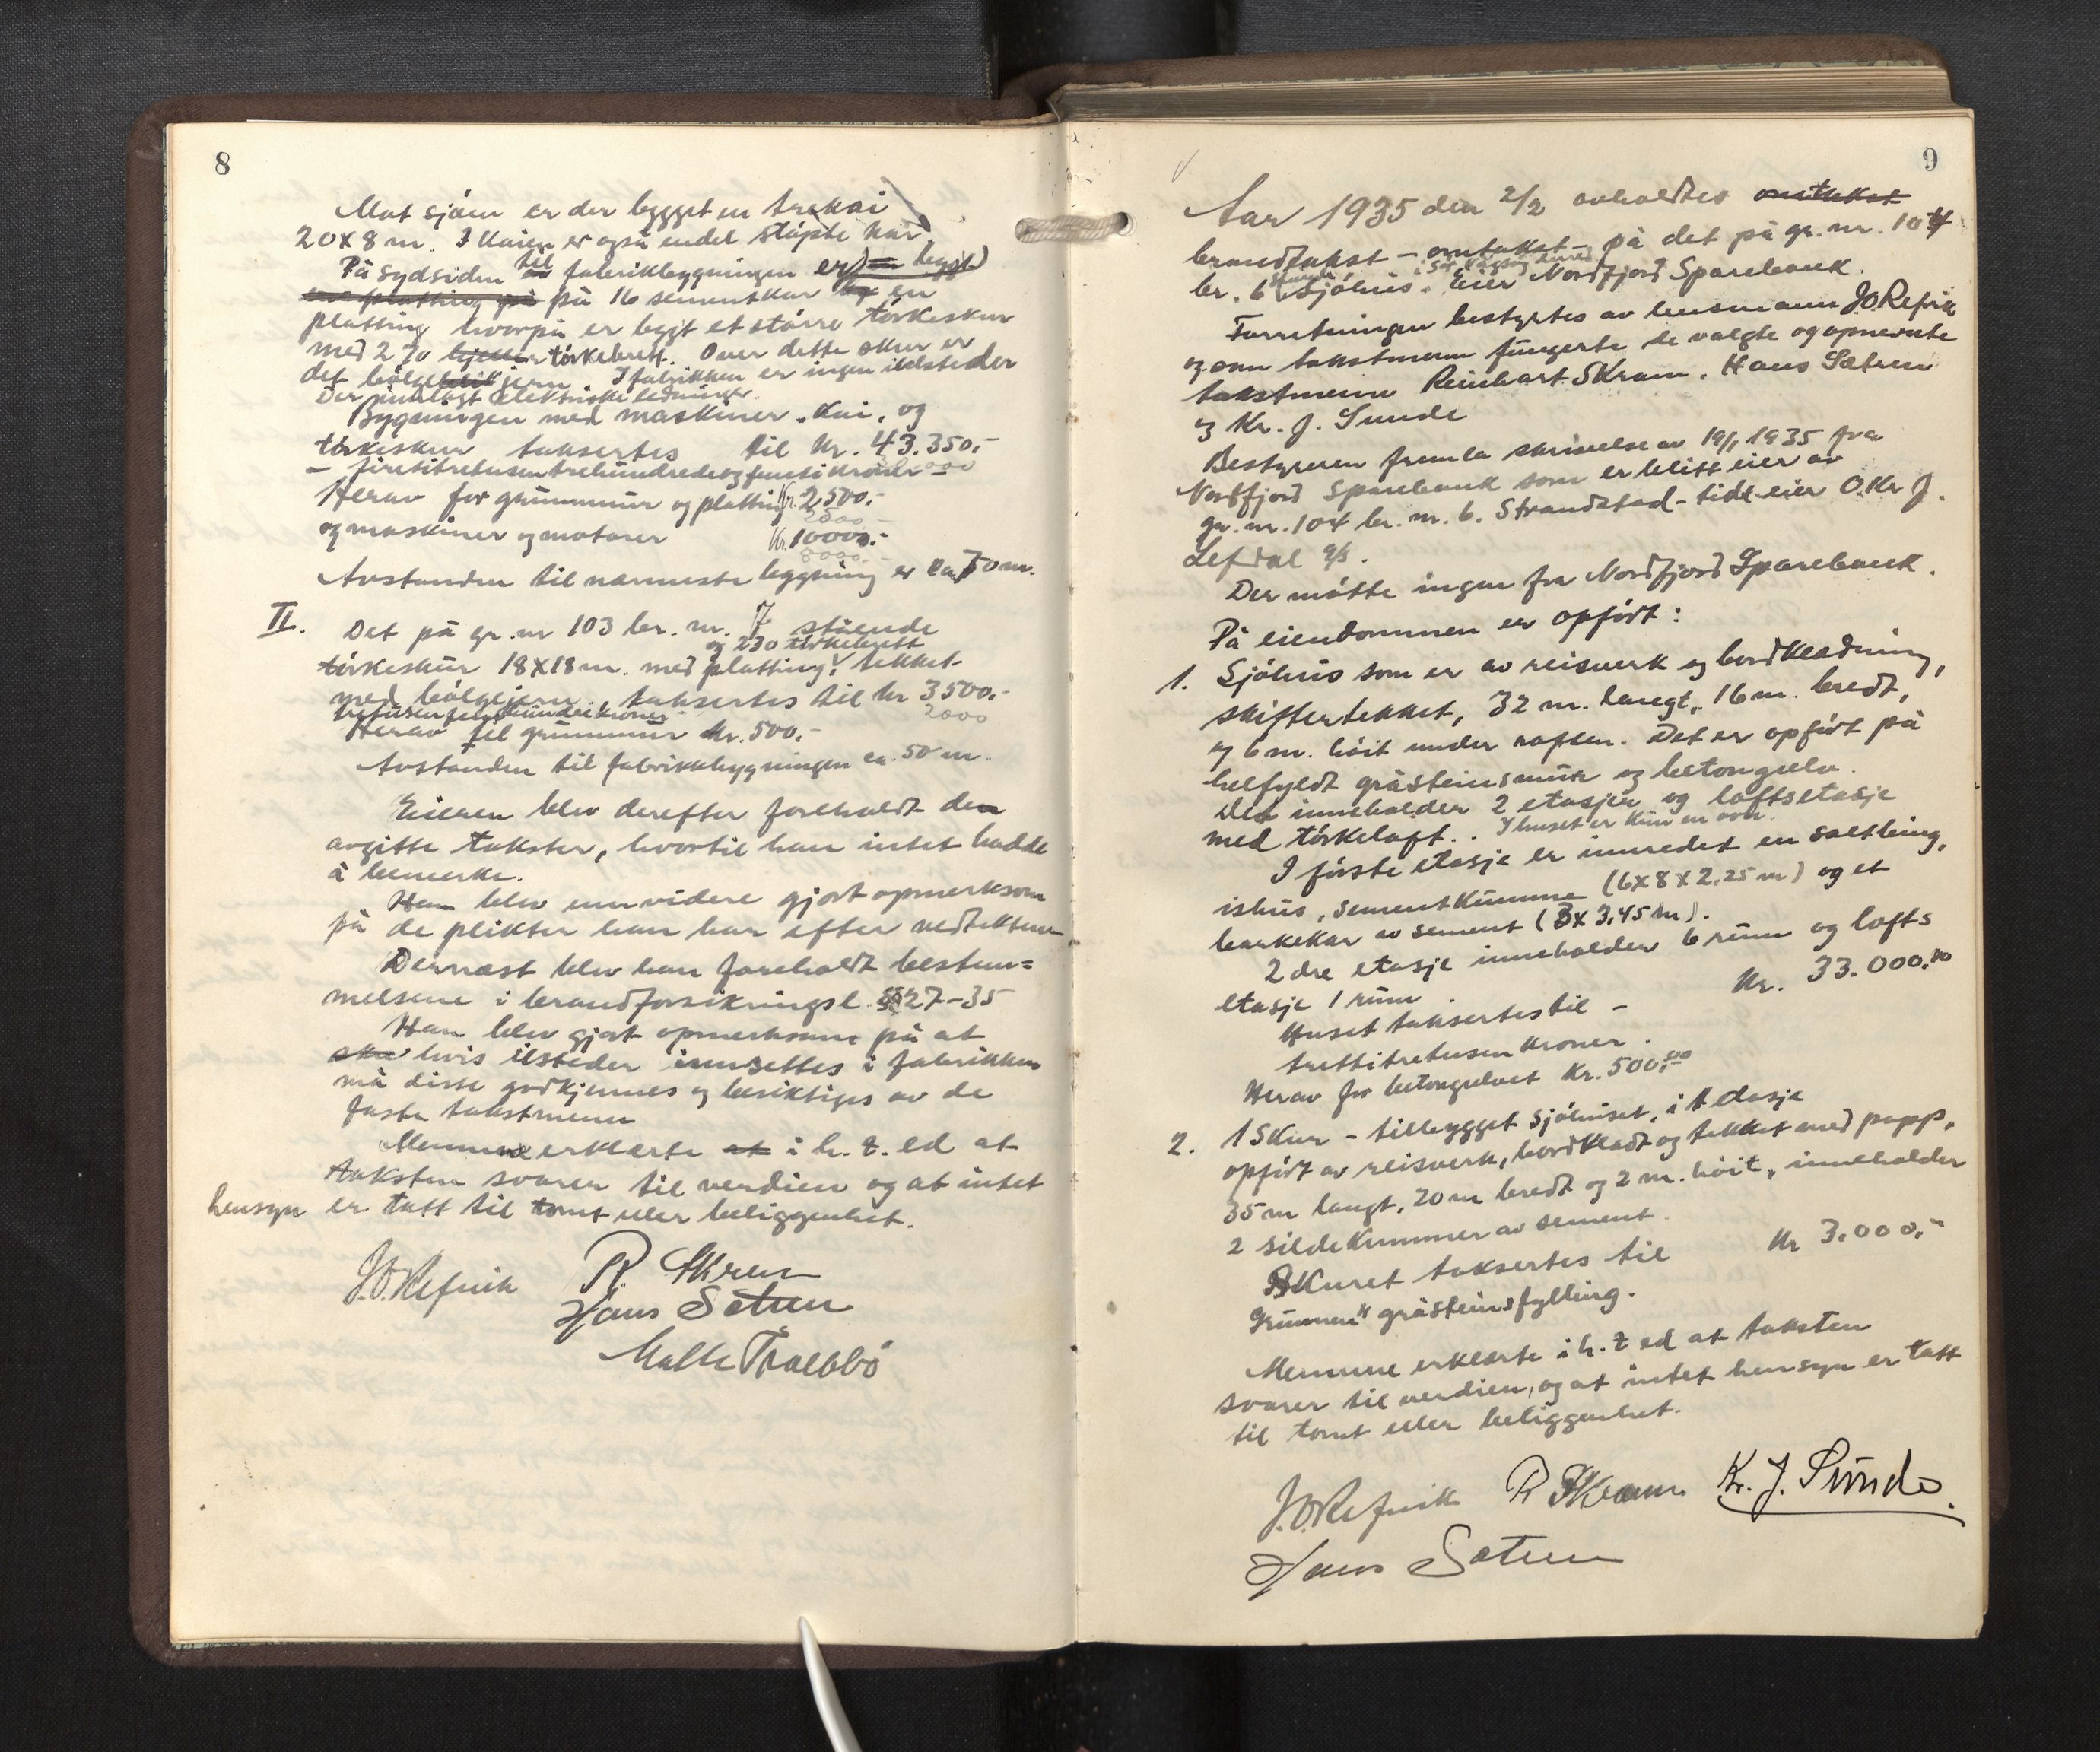 8
Mot sjöen er der bygget en trekai
20x8 m. I Kaien er også endel støpte kar
På sydsiden til fabrikbygningen er bygt
på 16 sementkar en
platting hvorpå er bygt et større tørkeskur
med 270 tørkebrett. Over dette skur er
det bølgeblikjern. I fabrikken er ingen ildsteder
Der innlagt elektriske ledninger.
Bygningen med maskiner, Kai, og
tørkeskur taksertes til kr. 43.350.-
- firetitretusentrehundredeogfemtikroner -
Herav for grunnmur og platting kr. 2500.-
2500
og maskiner og motorer Kr. 10000.-
8000.-
Avstanden til nærmeste bygning er ca. 50 m.
II. Det på gr. nr 103 br. nr. 7 stående
og 230 tørkebrett
tørkeskur 18x18 m. med platting tekket
med bølgejern taksertes til kr 3500.-
tretusenfemhundrekroner 2000
Herav til grunnmur kr. 500.-
Avstanden til fabrikkbygningen ca. 50 m.
Eieren blev derefter foreholdt den
avgitte takster, hvortil han intet hadde
å bemerke.
Han blev enn videre gjort opmerksom
på de plikter han har efter vedtektene
Dernæst blev han foreholdt bestem=
melsene i brandforsikringsl. §§ 27-35
Han blev gjort opmerksom på at
hvis ilsteder innsettes i fabrikken
må disse godkjennes og besiktiges av de
faste takstmenn
Mennene erklærte at i h. t. ed at
taksten svarer til verdien og at intet
hensyn er tatt til tomt eller beliggenhet.
J.O. Refvik R. Skram
Hans Sætren
Malte Trælbbö
9
Aar 1935 den 2/2 avholdtes omtakst
brandtakst - omtakst - på det på gr. nr. 104
br. 6 Sjøhus. Eier Nordfjord Sparebank.
Forretningen bestyrtes av lensmann J.O. Refvik
og som takstmenn fungerte de valgte og opnevnte
takstmenn Reinhart Skram, Hans Sætren
og Kr. J. Sunde
Bestyreren fremla skrivelse av 19/1 1935 fra
Nordfjord Sparebank som er blitt eier av
gr. nr. 104 br. nr. 6. Strandstad - tidl. eier O. Kr. J.
Lefdal
Der møtte ingen fra Nordfjord Sparebank.
På eiendommen er opført:
1. Sjøhus som er av reisverk og bordkledning,
skiffertekket, 32 m. langt, 16 m. bredt,
og 6 m. høit under raften. Det er opført på
helfyldt gråsteinsmur og betongsåle.
Den inneholder 2 etasjer og loftsetasje
med tørkeloft. I huset er kun en ovn.
I første etasje er innredet en saltbing,
ishus, sementkumme (6x8x2,25 m) og et
barkekar av sement (3x3,45 m).
2dre etasje inneholder 6 rum og lofts
etasje 1 rum.
Huset taksertes til - Kr. 33.000.00
trettitretusen kroner.
Herav for betongulvet Kr. 500,00
2. 1 Skur - tilbygget sjøhuset, i 1 etasje
opført av reisverk, bordkledt og tekket med papp,
35 m langt, 20 m bredt og 2 m. høit, inneholder
2 sildekummer av sement.
Skuret taksertes til kr 3.000,-
Grunnen gråsteinsfylling.
Mennene erklærte i h. t ed at taksten
svarer til verdien, og at intet hensyn er tatt
til tomt eller beliggenhet.
J.O. Refvik R Skram Kr. J. Sunde.
Hans Sætren